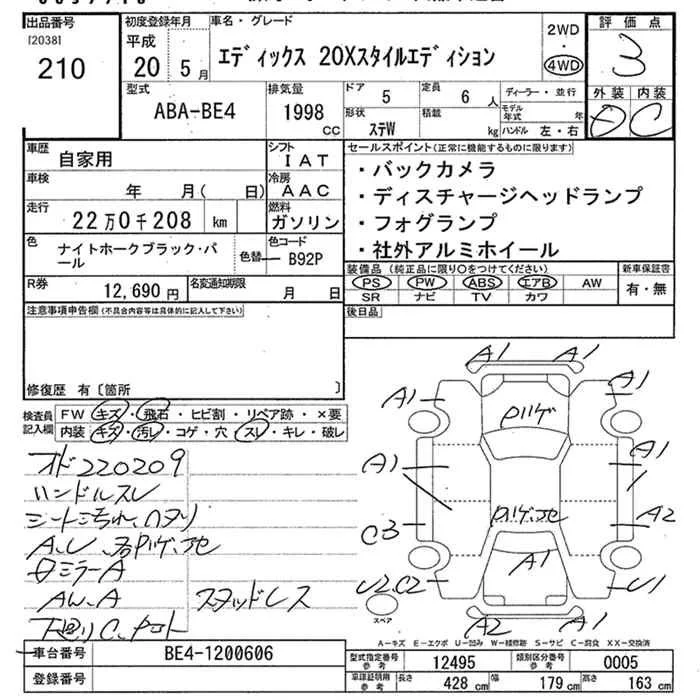 出品番号 初度登録年月 車名・グレード 評価点
[2038] 平成 2WD
210 20 5月 エディックス 20Xスタイルエディション ・ 4WD 3
型式 排気量 ドア 定員 ディーラー・並行 外装 内装
ABA-BE4 1998 CC 5 6 人 モデル年式 年 C
形状 積載 ハンドル 左・右
ステW kg
車歴 自家用 シフト IAT セールスポイント(正常に機能するものに限ります)
車検 年 月( 日) 冷房 AAC ・バックカメラ
走行 22万0千208 km 燃料 ガソリン ・ディスチャージヘッドランプ
色 ナイトホークブラック・パール 色替 色コード B92P ・フォグランプ
・社外アルミホイール
R券 12,690円 名変通知期限 月 日
装備品(純正品に限り○をつけてください) 新車保証書
PS PW ABS エアB AW 有・無
SR ナビ TV カワ
注意事項申告欄(不具合内容等は具体的に記入して下さい) 後日品
修復歴 有〔箇所 〕
検査員記入欄 FW キズ・飛石・ヒビ割・リペア跡・×要
内装 キズ・汚レ・コゲ・穴・スレ・キレ・破レ
オド220209
ハンドルスレ
シートよごれ、ヘタリ
A.U
ミラーA
AW.A スタッドレス
A1 A1
A1 A1
A1 A1
C3 A2
A1
U2.C2 U1
A2 A1
スペア
A-キズ E-エクボ U-凹み W-補修跡 S-サビ C-腐食 XX-交換済
車台番号 BE4-1200606 型式指定番号 参考 12495 類別区分番号 参考 0005
登録番号 車検証明用 参考 長さ 428 cm 幅 179 cm 高さ 163 cm